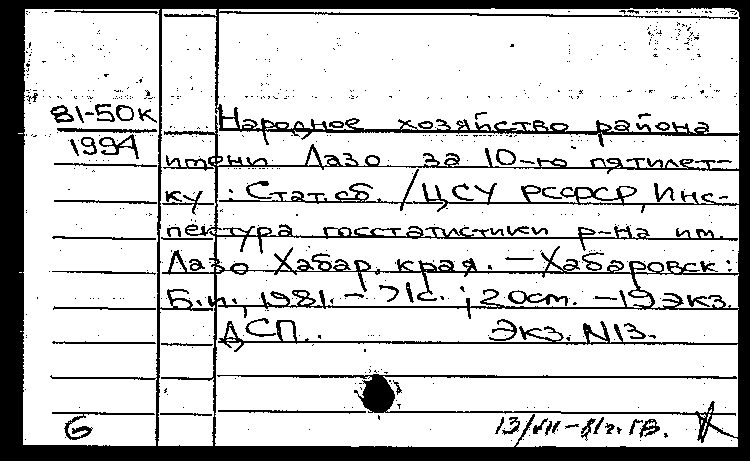 81-50к
1994
Народное хозяйство района
имени Лазо за 10-го пятилет-
ку : Стат.сб. / ЦСУ РСФСР, Инс-
пектура госстатистики р-на им.
Лазо Хабар. края. — Хабаровск :
Б.и., 1981. - 71с. ; 20см. - 19 экз.
ДСП. Экз. N13.
6
13/VII-81г. ГВ.